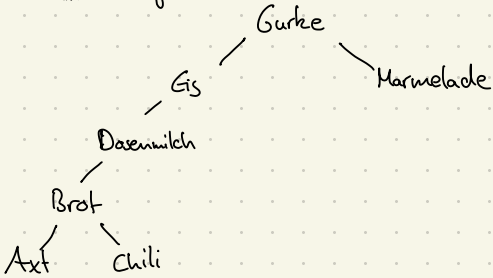 Gurke
Eis
Marmelade
Dosenmilch
Brot
Axt
Chili